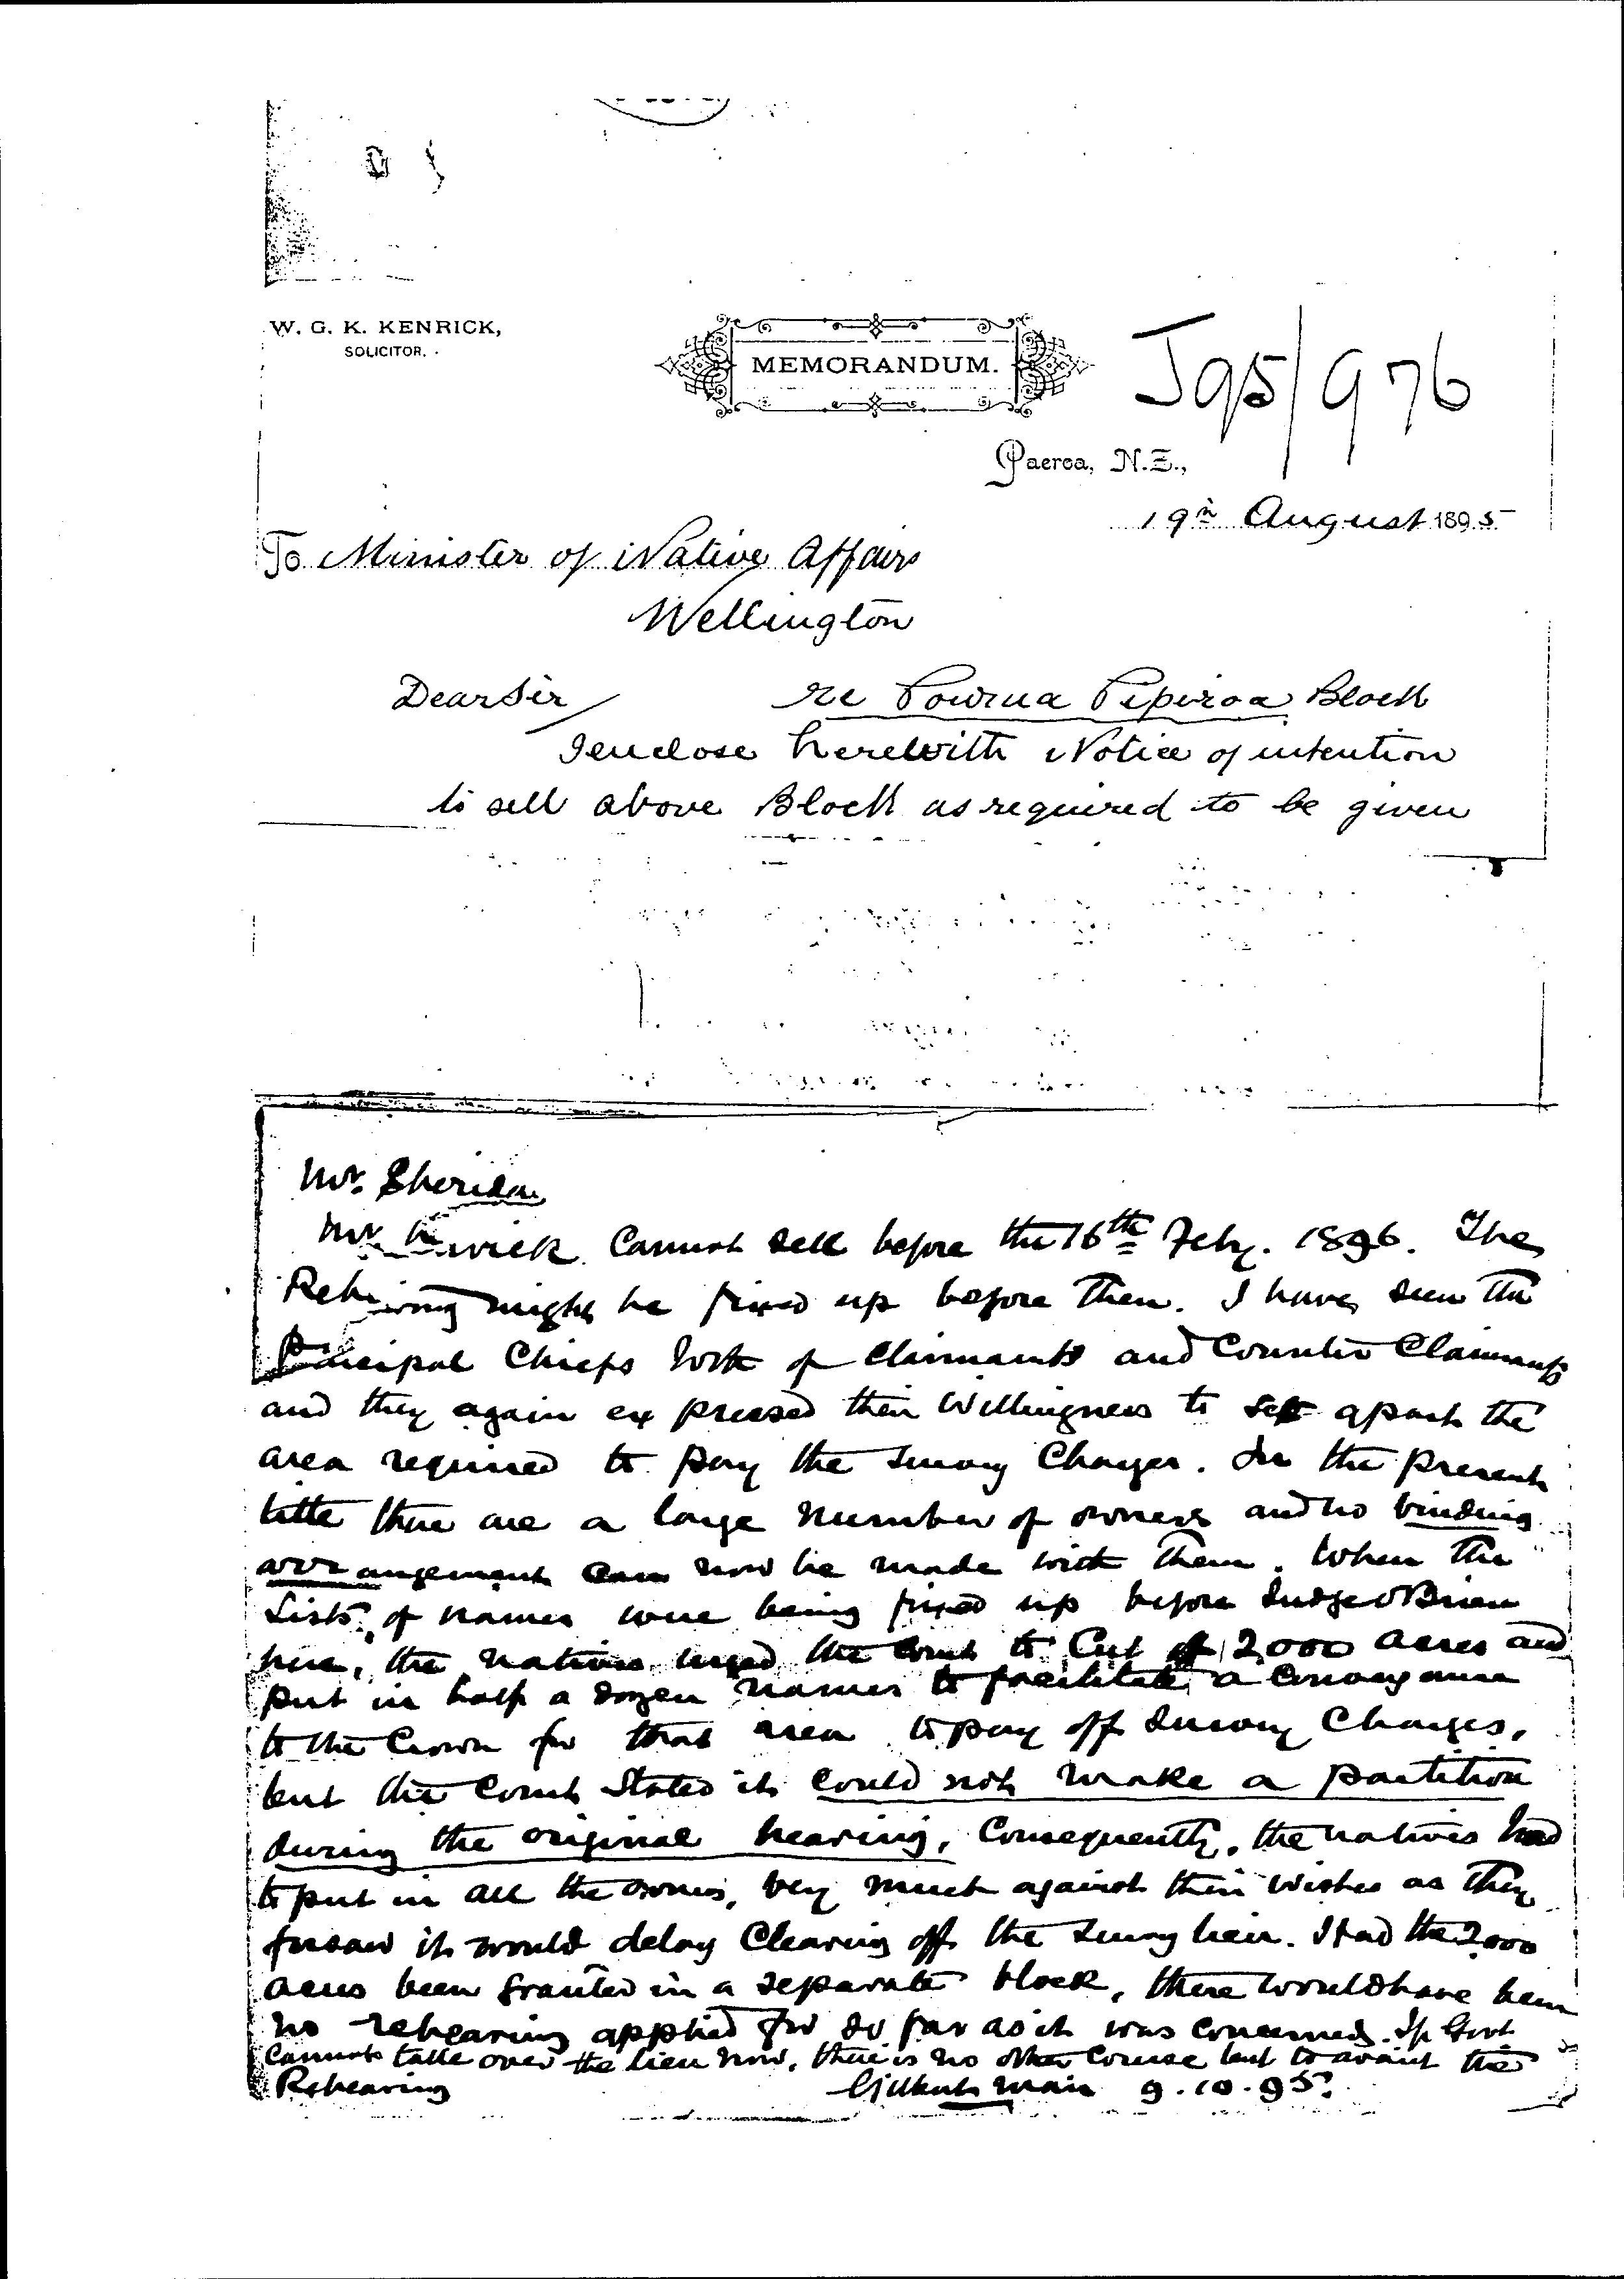 W. G. K. KENRICK,
SOLICITOR.
MEMORANDUM.
J95/976
Paeroa, N.Z.,
19th August 1895
To Minister of Native Affairs
Wellington
Dear Sir
re Powrua Pipiroa Block
I enclose herewith Notice of intention
to sell above Block as required to be given
Mr. Sheridan
Mr Kenrick Cannot sell before the 16th Feby. 1896. The
Rehearing might be fixed up before then. I have seen the
Principal Chiefs both of Claimants and Counter Claimants
and they again expressed their willingness to set apart the
area required to pay the survey Charges. In the present
title there are a large number of owners and no binding
arrangement can now be made with them. When the
Lists of names were being fixed up before Judge O'Brien
here, the natives urged the Court to Cut off 2000 acres and
put in half a dozen names to facilitate a Conveyance
to the Crown for that area to pay off Survey Charges,
but the Court Stated it could not make a partition
during the original hearing, Consequently, the natives had
to put in all the owners, very much against their wishes as they
forsaw it would delay Clearing off the survey lien. Had the 2000
acres been granted in a separate block, there would have been
no rehearing applied for so far as it was concerned. If Govt
Cannot take over the lien now, there is no other Course but to await the
Rehearing
Gilbert Mair 9.10.95.